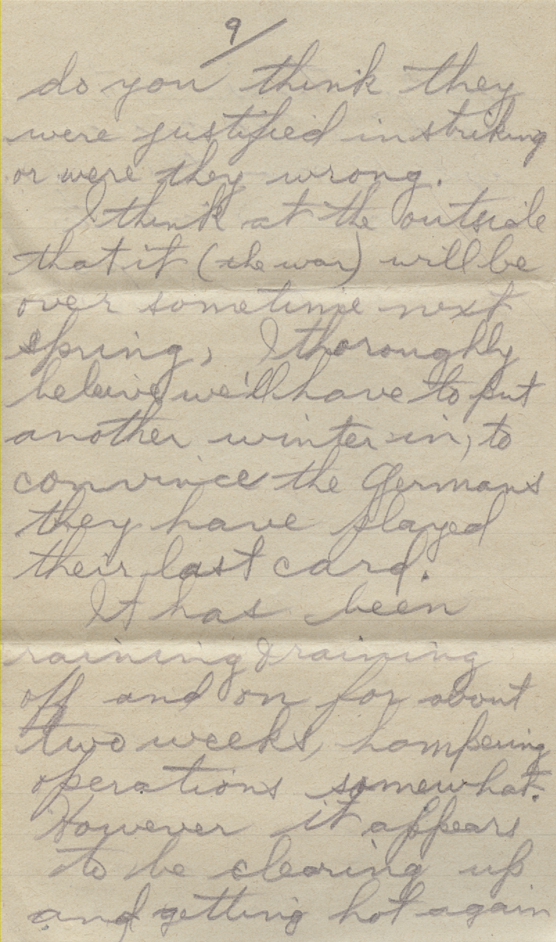 9/
do you think they
were justified in striking
or were they wrong.
I think at the outside
that it (the war) will be
over sometime next
spring, I thoroughly
beleive we'll have to put
another winter in, to
convince the Germans
they have played
their last card.
It has been
raining & raining
off and on for about
two weeks, hampering
operations somewhat.
However it appears
to be clearing up
and getting hot again